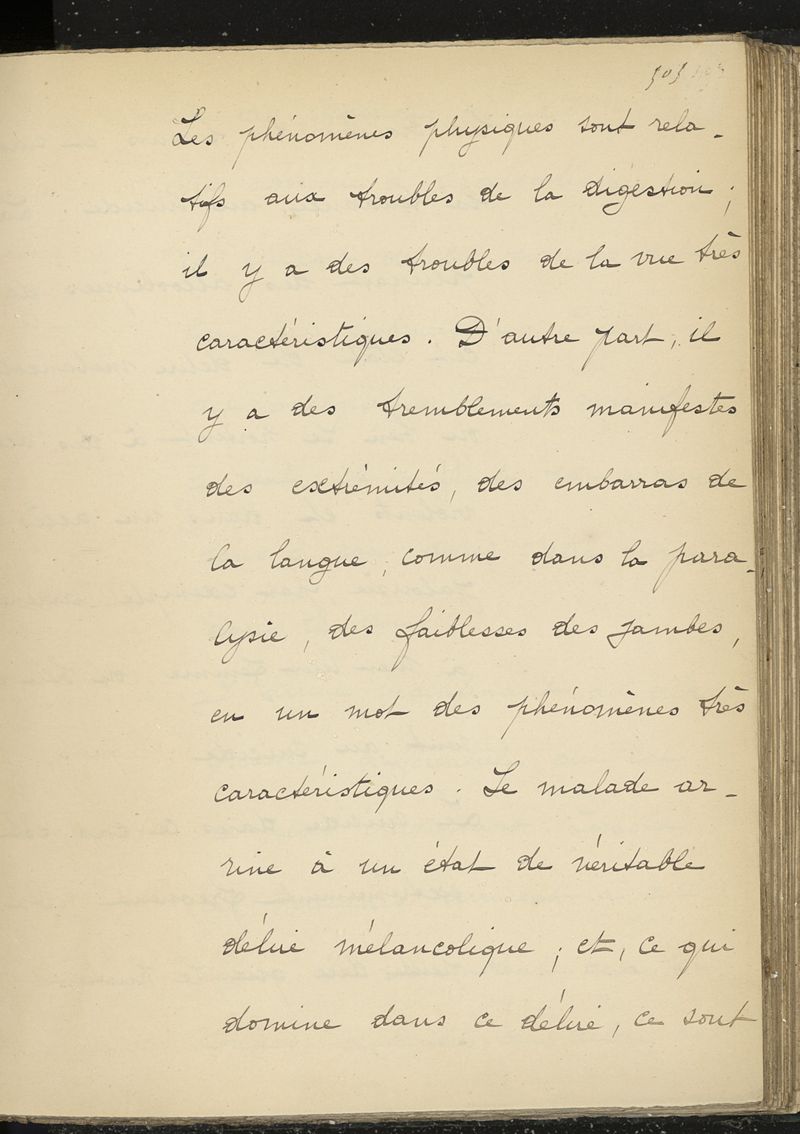 505
Les phénomènes physiques sont rela-
tifs aux troubles de la digestion ;
il y a des troubles de la vue très
caractéristiques. D'autre part, il
y a des tremblements manifestes
des extrémités, des embarras de
la langue, comme dans la para-
lysie, des faiblesses des jambes,
en un mot des phénomènes très
caractéristiques. Le malade ar-
rive à un état de véritable
délire mélancolique ; et, ce qui
domine dans ce délire, ce sont